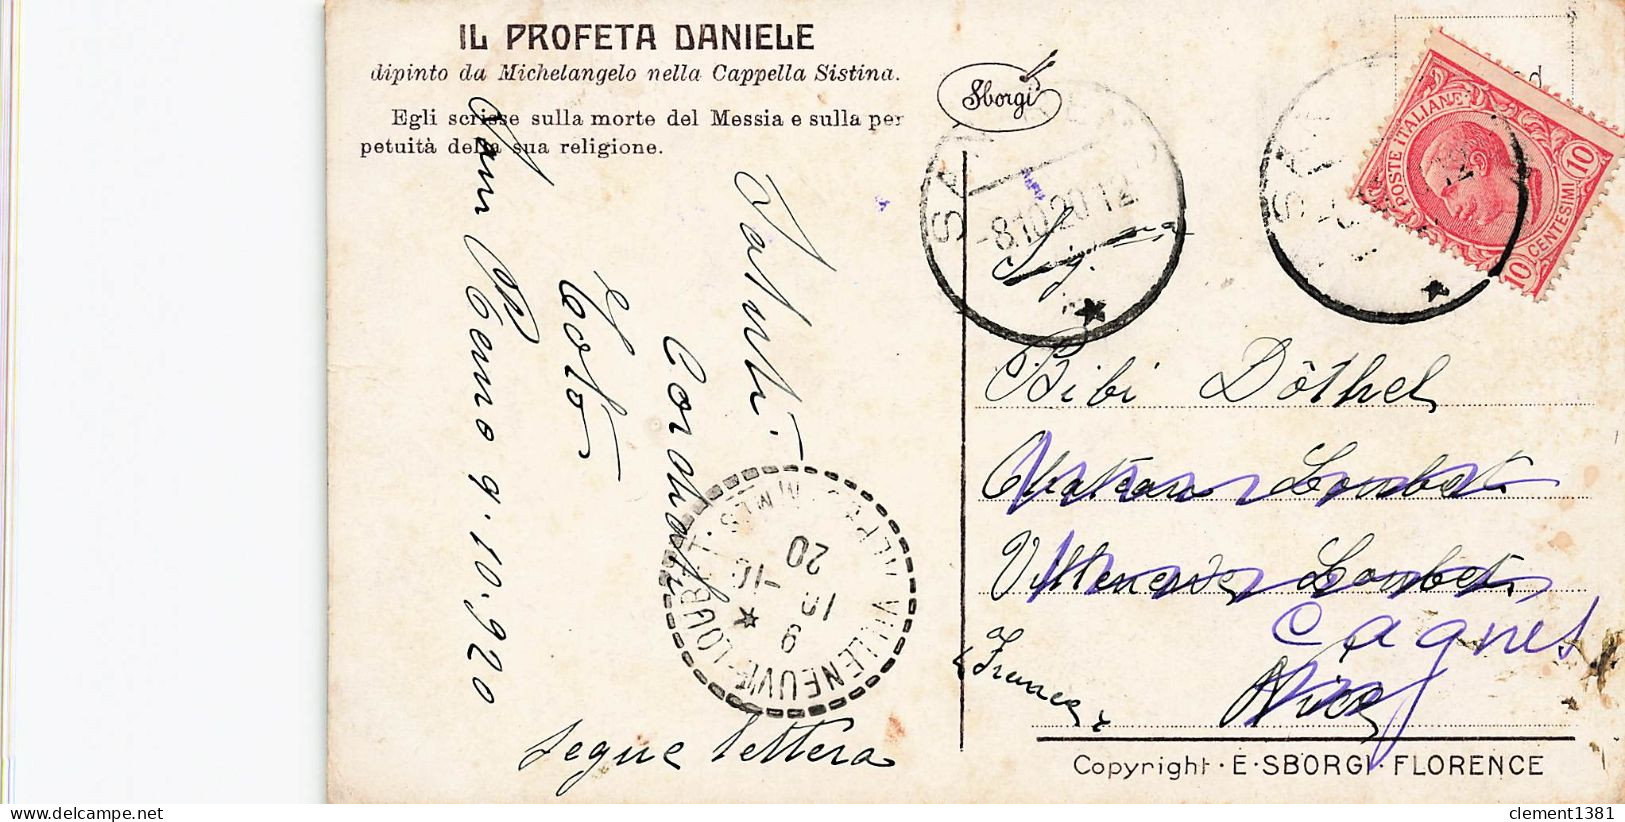 IL PROFETA DANIELE
dipinto da Michelangelo nella Cappella Sistina.
Egli scrisse sulla morte del Messia e sulla per
petuità della sua religione.
Sborgi
San Remo 9.10.920
Saluti
Cordiali
Totò
segue lettera
SAN REMO
-8.10.20.12
POSTE ITALIANE
10 CENTESIMI 10
Sig.na
Bibi Dôthel
Château Loubet
Villeneuve Loubet
Cagnes
(France)
Nice
VILLENEUVE-LOUBET
ALPES-MMES
9
-10
20
Copyright · E · SBORGI · FLORENCE
clement1381